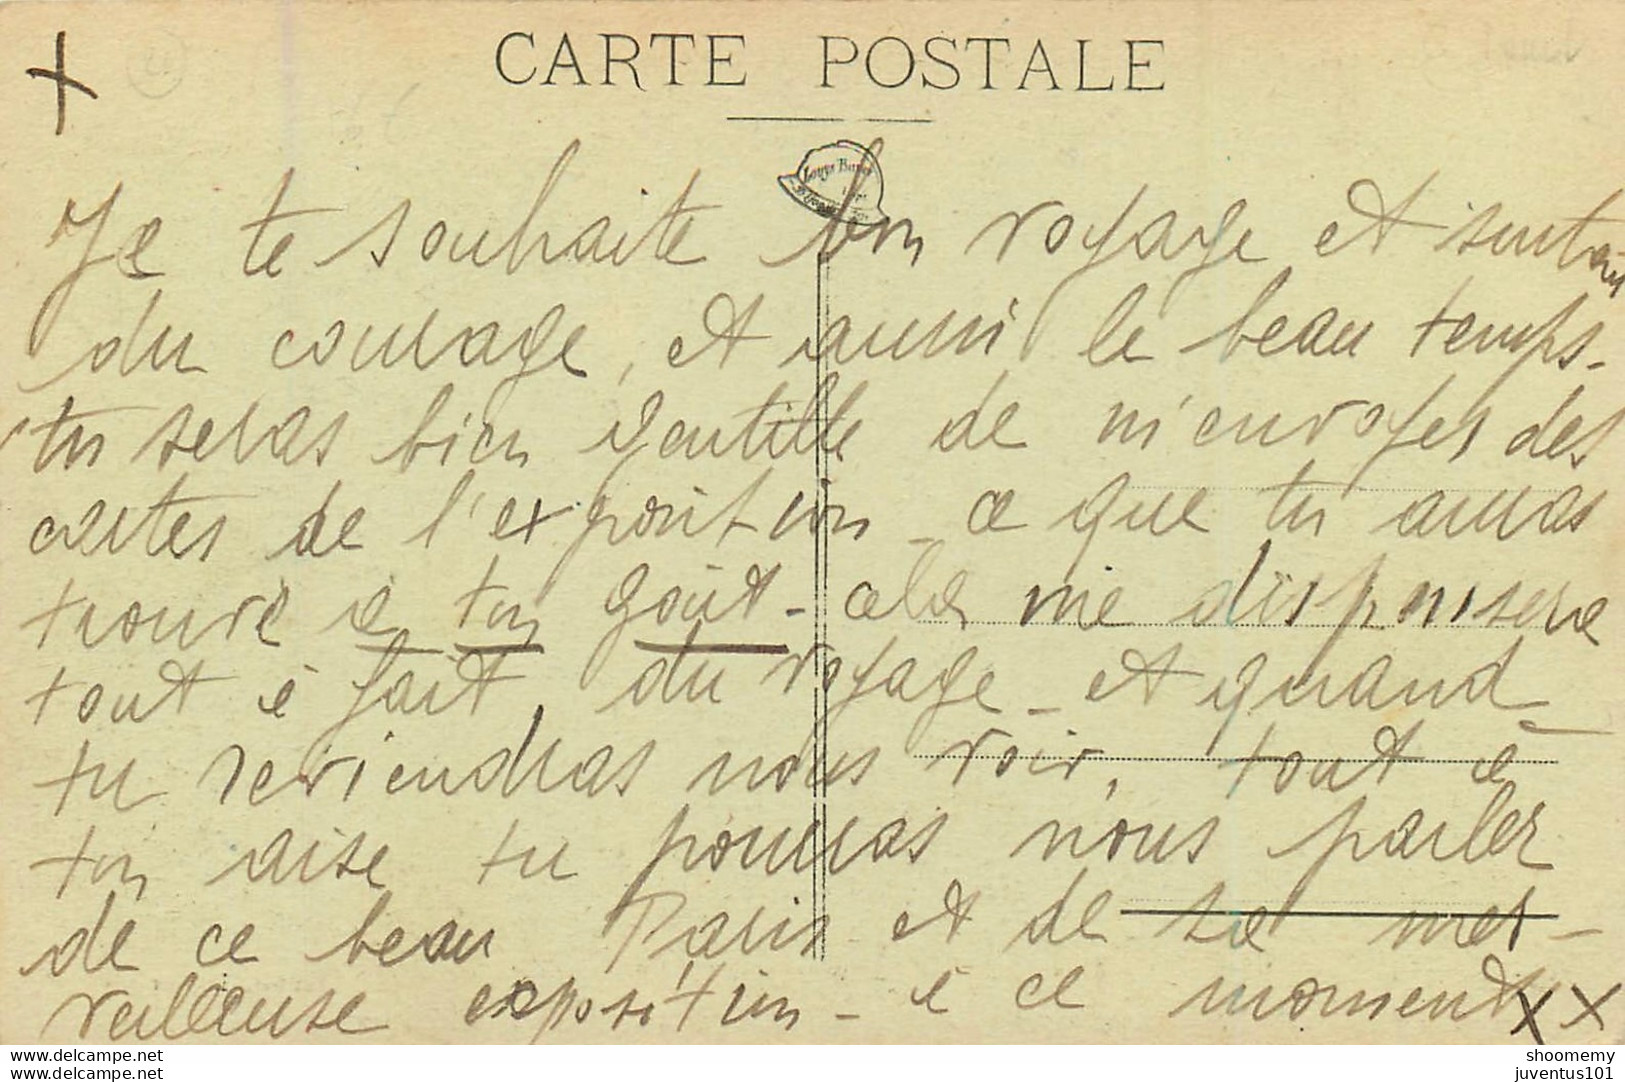 CARTE POSTALE
+
Louys Bauer
Je te souhaite bon voyage et surtout
du courage, et aussi le beau temps-
tu seras bien gentille de m'envoyer des
cartes de l'exposition - ce que tu auras
trouvé à ton goût - cela me dispensera
tout à fait, du voyage - et quand
tu reviendras nous voir, tout à
ton aise tu pourras nous parler
de ce beau Paris et de sa mer-
veilleuse exposition - à ce moment
X X
shoomemy
shoomemy
juventus101
juventus101